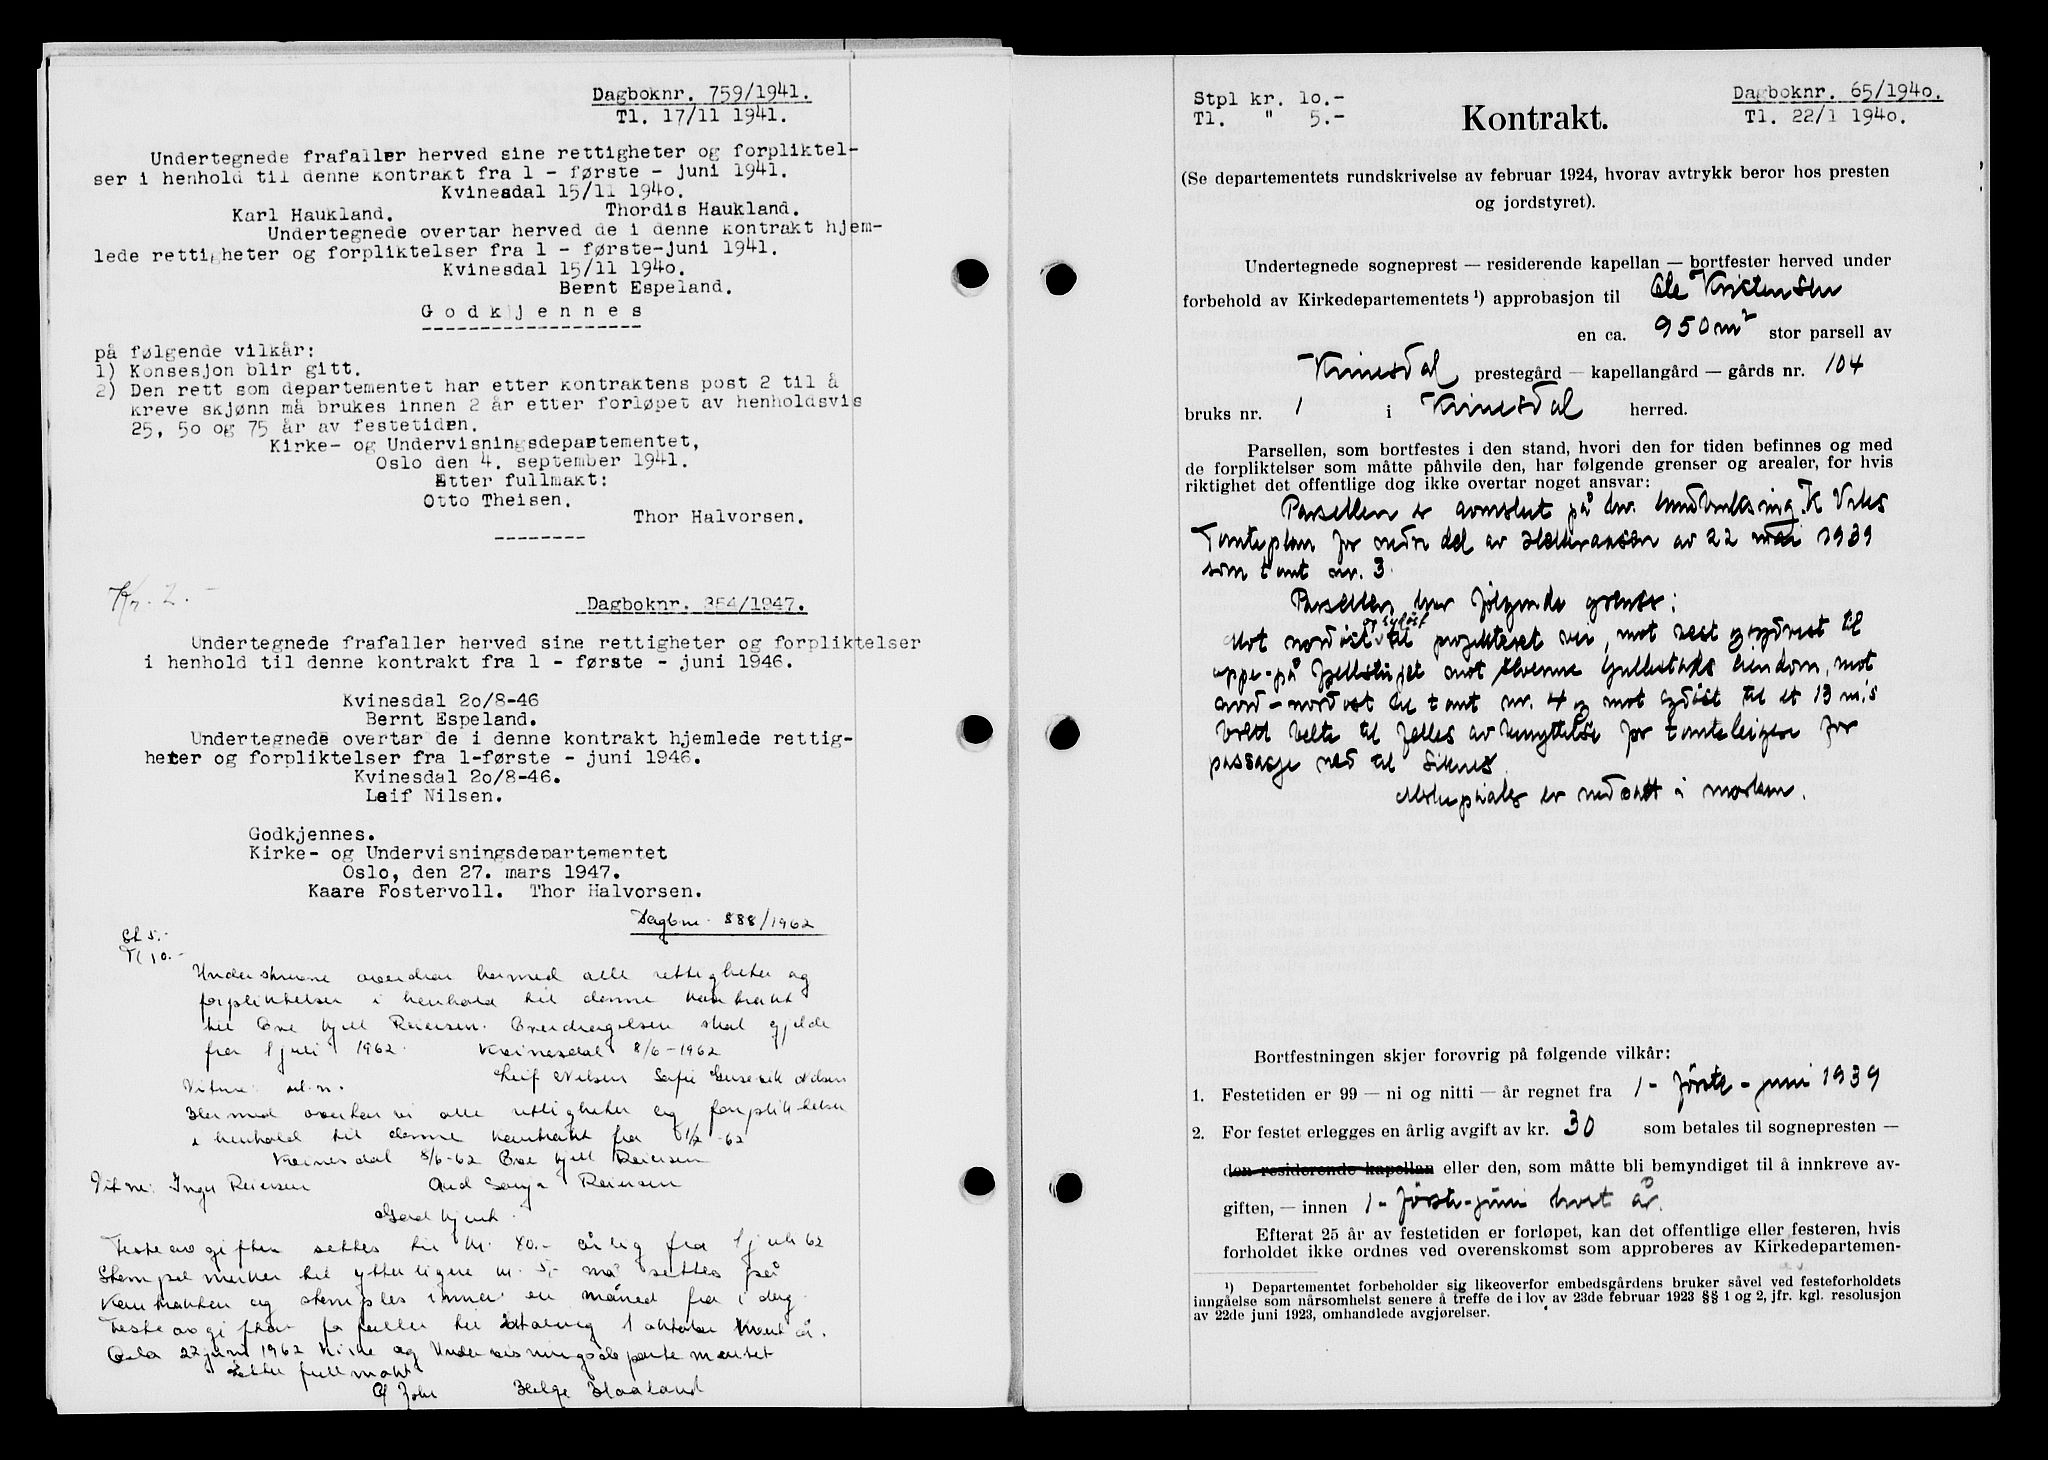 Dagboknr. 759/1941.
Tl. 17/11 1941.
Undertegnede frafaller herved sine rettigheter og forpliktel-
ser i henhold til denne kontrakt fra 1 - første - juni 1941.
Kvinesdal 15/11 1940.
Karl Haukland. Thordis Haukland.
Undertegnede overtar herved de i denne kontrakt hjem-
lede rettigheter og forpliktelser fra 1 - første-juni 1941.
Kvinesdal 15/11 1940.
Bernt Espeland.
Godkjennes
på følgende vilkår:
1) Konsesjon blir gitt.
2) Den rett som departementet har etter kontraktens post 2 til å
kreve skjønn må brukes innen 2 år etter forløpet av henholdsvis
25, 50 og 75 år av festetiden.
Kirke- og Undervisningsdepartementet,
Oslo den 4. september 1941.
Etter fullmakt:
Otto Theisen.
Thor Halvorsen.
Kr. 2.-
Dagboknr. 354/1947.
Undertegnede frafaller herved sine rettigheter og forpliktelser
i henhold til denne kontrakt fra 1 - første - juni 1946.
Kvinesdal 20/8-46
Bernt Espeland.
Undertegnede overtar de i denne kontrakt hjemlede rettig-
heter og forpliktelser fra 1-første - juni 1946.
Kvinesdal 20/8-46.
Leif Nilsen.
Godkjennes.
Kirke- og Undervisningsdepartementet
Oslo, den 27. mars 1947.
Kaare Fostervoll. Thor Halvorsen.
Dagbnr. 888/1962
St 5.-
Tl 10.-
Underskrevne overdrar hermed alle rettigheter og
forpliktelser i henhold til denne kontrakt
til Ove Kjell Reiersen. Overdragelsen skal gjelde
fra 1 juli 1962. Kvinesdal 8/6-1962
Vitne: ul.n. Leif Nilsen Sofie Nilsen
Hermed overtar vi alle rettigheter og forpliktelser
i henhold til denne kontrakt fra 1/7-62
Kvinesdal 8/6-62 Ove Kjell Reiersen
Vitne: Inger Reiersen Aud Sonja Reiersen
Godkjent.
Festeavgiften settes til kr. 80.- årlig fra 1 juli 62
Stempelmerker til ytterligere kr. 5,- må settes på
kontrakten og stemples innen en måned fra i dag.
Festeavgiften forfaller til betaling 1 oktober hvert år.
Oslo 27 juni 1962 Kirke og Undervisningsdepartementet
Etter fullmakt
Helge Haaland
Stpl kr. 10.-
Tl. " 5.-
Kontrakt.
Dagboknr. 65/1940.
Tl. 22/1 1940.
(Se departementets rundskrivelse av februar 1924, hvorav avtrykk beror hos presten
og jordstyret).
Undertegnede sogneprest — residerende kapellan — bortfester herved under
forbehold av Kirkedepartementets ¹) approbasjon til Ole Kristensen
en ca. 950 m² stor parsell av
Kvinesdal prestegård — kapellangård — gårds nr. 104
bruks nr. 1 i Kvinesdal herred.
Parsellen, som bortfestes i den stand, hvori den for tiden befinnes og med
de forpliktelser som måtte påhvile den, har følgende grenser og arealer, for hvis
riktighet det offentlige dog ikke overtar noget ansvar:
Parsellen er avmerket på landbruksing. K Viks
Tomteplan for nedre del av av 22 mai 1939
som tomt nr. 3.
Parsellen har følgende grenser:
Mot nordøst og sydøst til projekteret vei, mot vest og sydvest til
oppe-på mot eiendom, mot
nord - nordvest til tomt nr. 4 og mot sydøst til et 13 m.s
bredt belte til felles avbenyttelse for tomteleiere for
passasje ned til
er nedsatt i marken.
Bortfestningen skjer forøvrig på følgende vilkår:
1. Festetiden er 99 — ni og nitti — år regnet fra 1 - første - juni 1939
2. For festet erlegges en årlig avgift av kr. 30 som betales til sognepresten —
den residerende kapellan eller den, som måtte bli bemyndiget til å innkreve av-
giften, — innen 1 - første - juni hvert år.
Efterat 25 år av festetiden er forløpet, kan det offentlige eller festeren, hvis
forholdet ikke ordnes ved overenskomst som approberes av Kirkedepartemen-
¹) Departementet forbeholder sig likeoverfor embedsgårdens bruker såvel ved festeforholdets
inngåelse som nårsomhelst senere å treffe de i lov av 23de februar 1923 §§ 1 og 2, jfr. kgl. resolusjon
av 22de juni 1923, omhandlede avgjørelser.